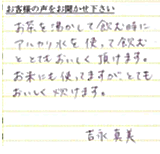 お客様の声をお聞かせ下さい
お茶を沸かして飲む時に
アルカリ水を使って飲む
ととてもおいしく頂けます。
お米にも使てますが、とても
おいしく炊けます。
吉永真美